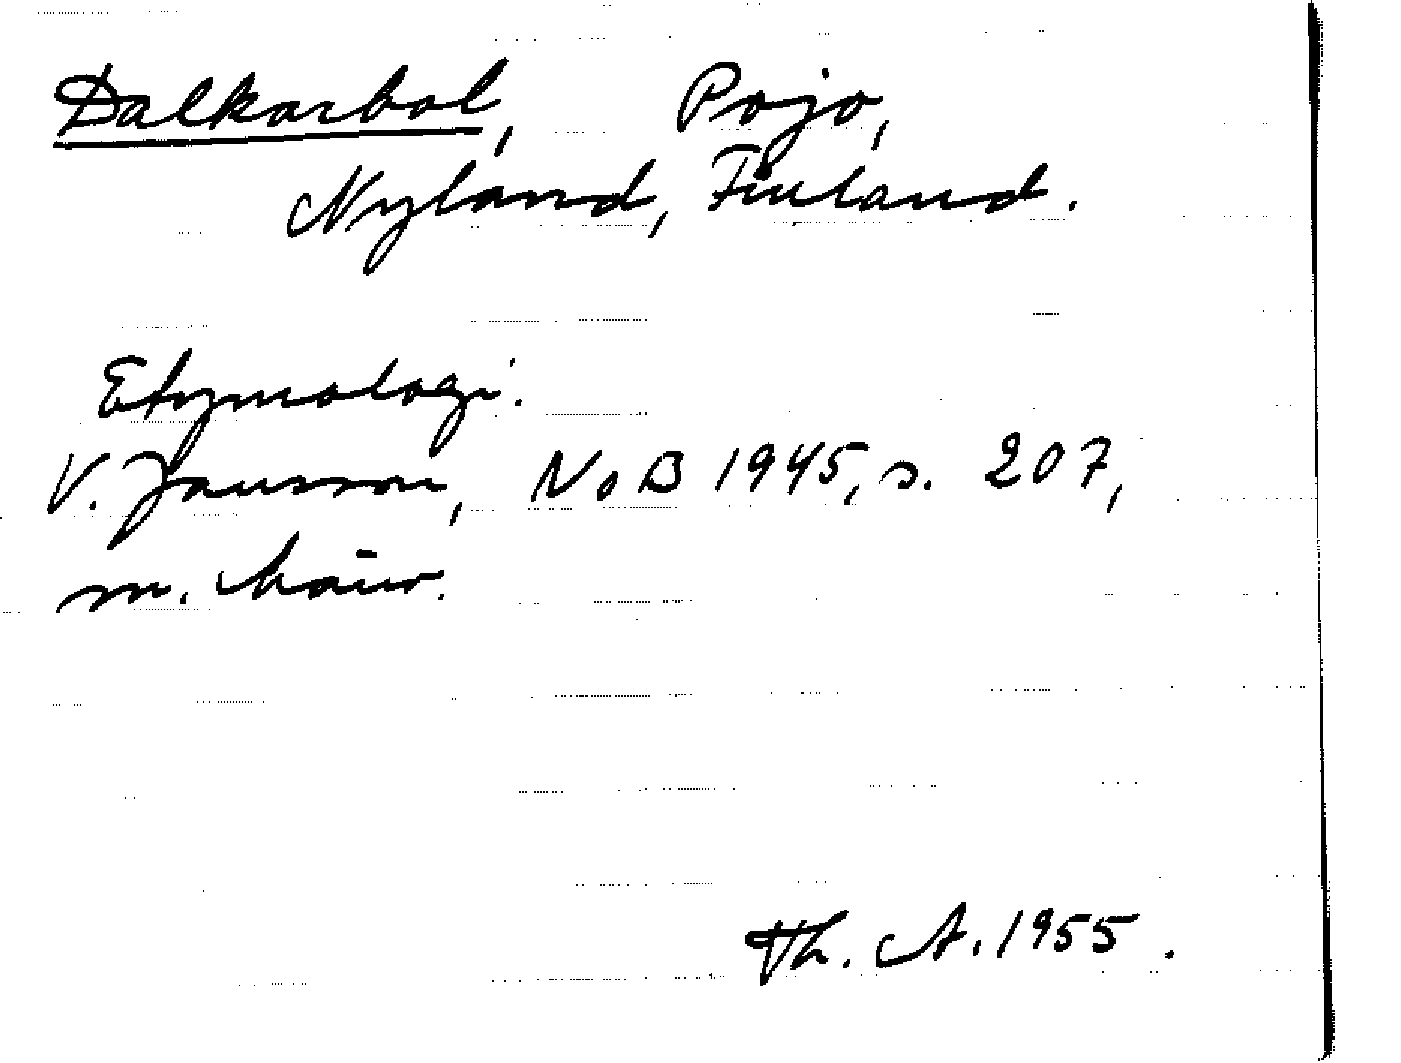 Dalkarbol, Pojo,
Nyland, Finland.
Etymologi.
V. Jansson, NoB 1945, s. 207,
m. hänv.
Th. A. 1955.